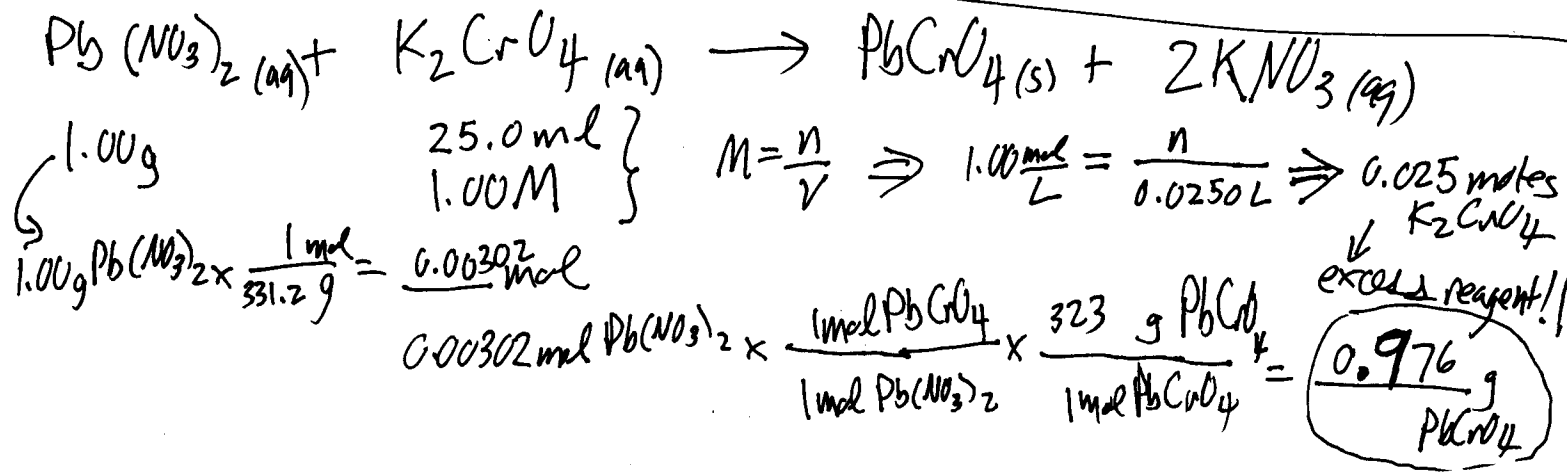 Pb(NO₃)₂ (aq) + K₂CrO₄ (aq) ⟶ PbCrO₄ (s) + 2KNO₃ (aq)
1.00g 25.0 ml } M = n/V ⇒ 1.00 mol/L = n/0.0250 L ⇒ 0.025 moles
1.00M K₂CrO₄
1.00g Pb(NO₃)₂ × 1 mol/331.2 g = 0.00302 mol
excess reagent!!
0.00302 mol Pb(NO₃)₂ × 1 mol PbCrO₄/1 mol Pb(NO₃)₂ × 323 g PbCrO₄/1 mol PbCrO₄ = 0.976 g
PbCrO₄